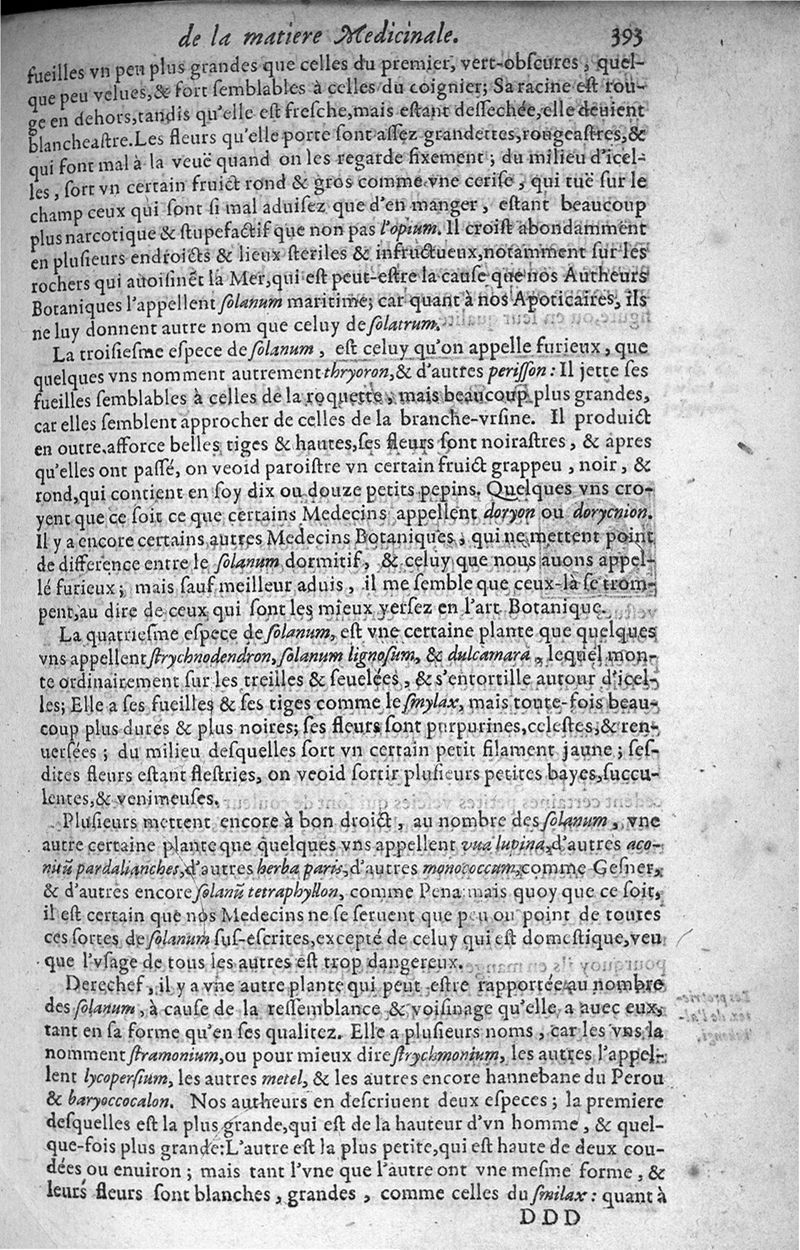 de la matiere Medicinale. 393
fueilles vn peu plus grandes que celles du premier, vert-obſcures, quel-
que peu velues,& fort ſemblables à celles du coignier; Sa racine eſt rou-
ge en dehors,tandis qu'elle eſt freſche,mais eſtant deſſechée,elle deuient
blancheaſtre.Les fleurs qu'elle porte ſont aſſez grandettes,rougeaſtres,&
qui font mal à la veuë quand on les regarde fixement ; du milieu d'icel-
les, ſort vn certain fruict rond & gros comme vne ceriſe, qui tuë ſur le
champ ceux qui ſont ſi mal aduiſez que d'en manger, eſtant beaucoup
plus narcotique & ſtupefactif que non pas l'opium. Il croiſt abondamment
en pluſieurs endroicts & lieux ſteriles & infructueux,notamment ſur les
rochers qui auoiſinẽt la Mer,qui eſt peut-eſtre la cauſe que nos Autheurs
Botaniques l'appellent ſolanum maritime; car quant à nos Apoticaires, ils
ne luy donnent autre nom que celuy de ſolatrum.
La troiſieſme eſpece de ſolanum, eſt celuy qu'on appelle furieux, que
quelques vns nomment autrement thryoron,& d'autres periſſon : Il jette ſes
fueilles ſemblables à celles de la roquette, mais beaucoup plus grandes,
car elles ſemblent approcher de celles de la branche-vrſine. Il produict
en outre afforce belles tiges & hautes,ſes fleurs ſont noiraſtres, & apres
qu'elles ont paſſé, on veoid paroiſtre vn certain fruict grappeu, noir, &
rond,qui contient en ſoy dix ou douze petits pepins. Quelques vns cro-
yent que ce ſoit ce que certains Medecins appellent doryon ou dorycnion.
Il y a encore certains autres Medecins Botaniques, qui ne mettent point
de difference entre le ſolanum dormitif, & celuy que nous auons appel-
lé furieux ; mais ſauf meilleur aduis, il me ſemble que ceux-là ſe trom-
pent,au dire de ceux qui ſont les mieux verſez en l'art Botanique.
La quatrieſme eſpece de ſolanum, eſt vne certaine plante que quelques
vns appellent ſtrychnodendron, ſolanum lignoſum, & dulcamara, lequel mon-
te ordinairement ſur les treilles & ſeuelées, & s'entortille autour d'icel-
les; Elle a ſes fueilles & ſes tiges comme le ſmylax, mais toute-fois beau-
coup plus dures & plus noires; ſes fleurs ſont purpurines,celeſtes,& ren-
uerſées ; du milieu deſquelles ſort vn certain petit filament jaune ; ſeſ-
dites fleurs eſtant fleſtries, on veoid ſortir pluſieurs petites bayes,ſuccu-
lentes,& venimeuſes.
Pluſieurs mettent encore à bon droict, au nombre des ſolanum, vne
autre certaine plante que quelques vns appellent vua lupina,d'autres aco-
nitũ pardalianches,d'autres herba paris,d'autres monococcum,comme Geſner,
& d'autres encore ſolanũ tetraphyllon, comme Pena: mais quoy que ce ſoit,
il eſt certain que nos Medecins ne ſe ſeruent que peu ou point de toutes
ces ſortes de ſolanum ſus-eſcrites,excepté de celuy qui eſt domeſtique,veu
que l'vſage de tous les autres eſt trop dangereux.
Derechef, il y a vne autre plante qui peut eſtre rapportée au nombre
des ſolanum, à cauſe de la reſſemblance & voiſinage qu'elle a auec eux,
tant en ſa forme qu'en ſes qualitez. Elle a pluſieurs noms, car les vns la
nomment ſtramonium,ou pour mieux dire ſtrychmonium, les autres l'appel-
lent lycoperſium, les autres metel, & les autres encore hannebane du Perou
& baryoccocalon. Nos autheurs en deſcriuent deux eſpeces ; la premiere
deſquelles eſt la plus grande,qui eſt de la hauteur d'vn homme, & quel-
que-fois plus grande:L'autre eſt la plus petite,qui eſt haute de deux cou-
dées ou enuiron ; mais tant l'vne que l'autre ont vne meſme forme, &
leurs fleurs ſont blanches, grandes, comme celles du ſmilax : quant à
DDD